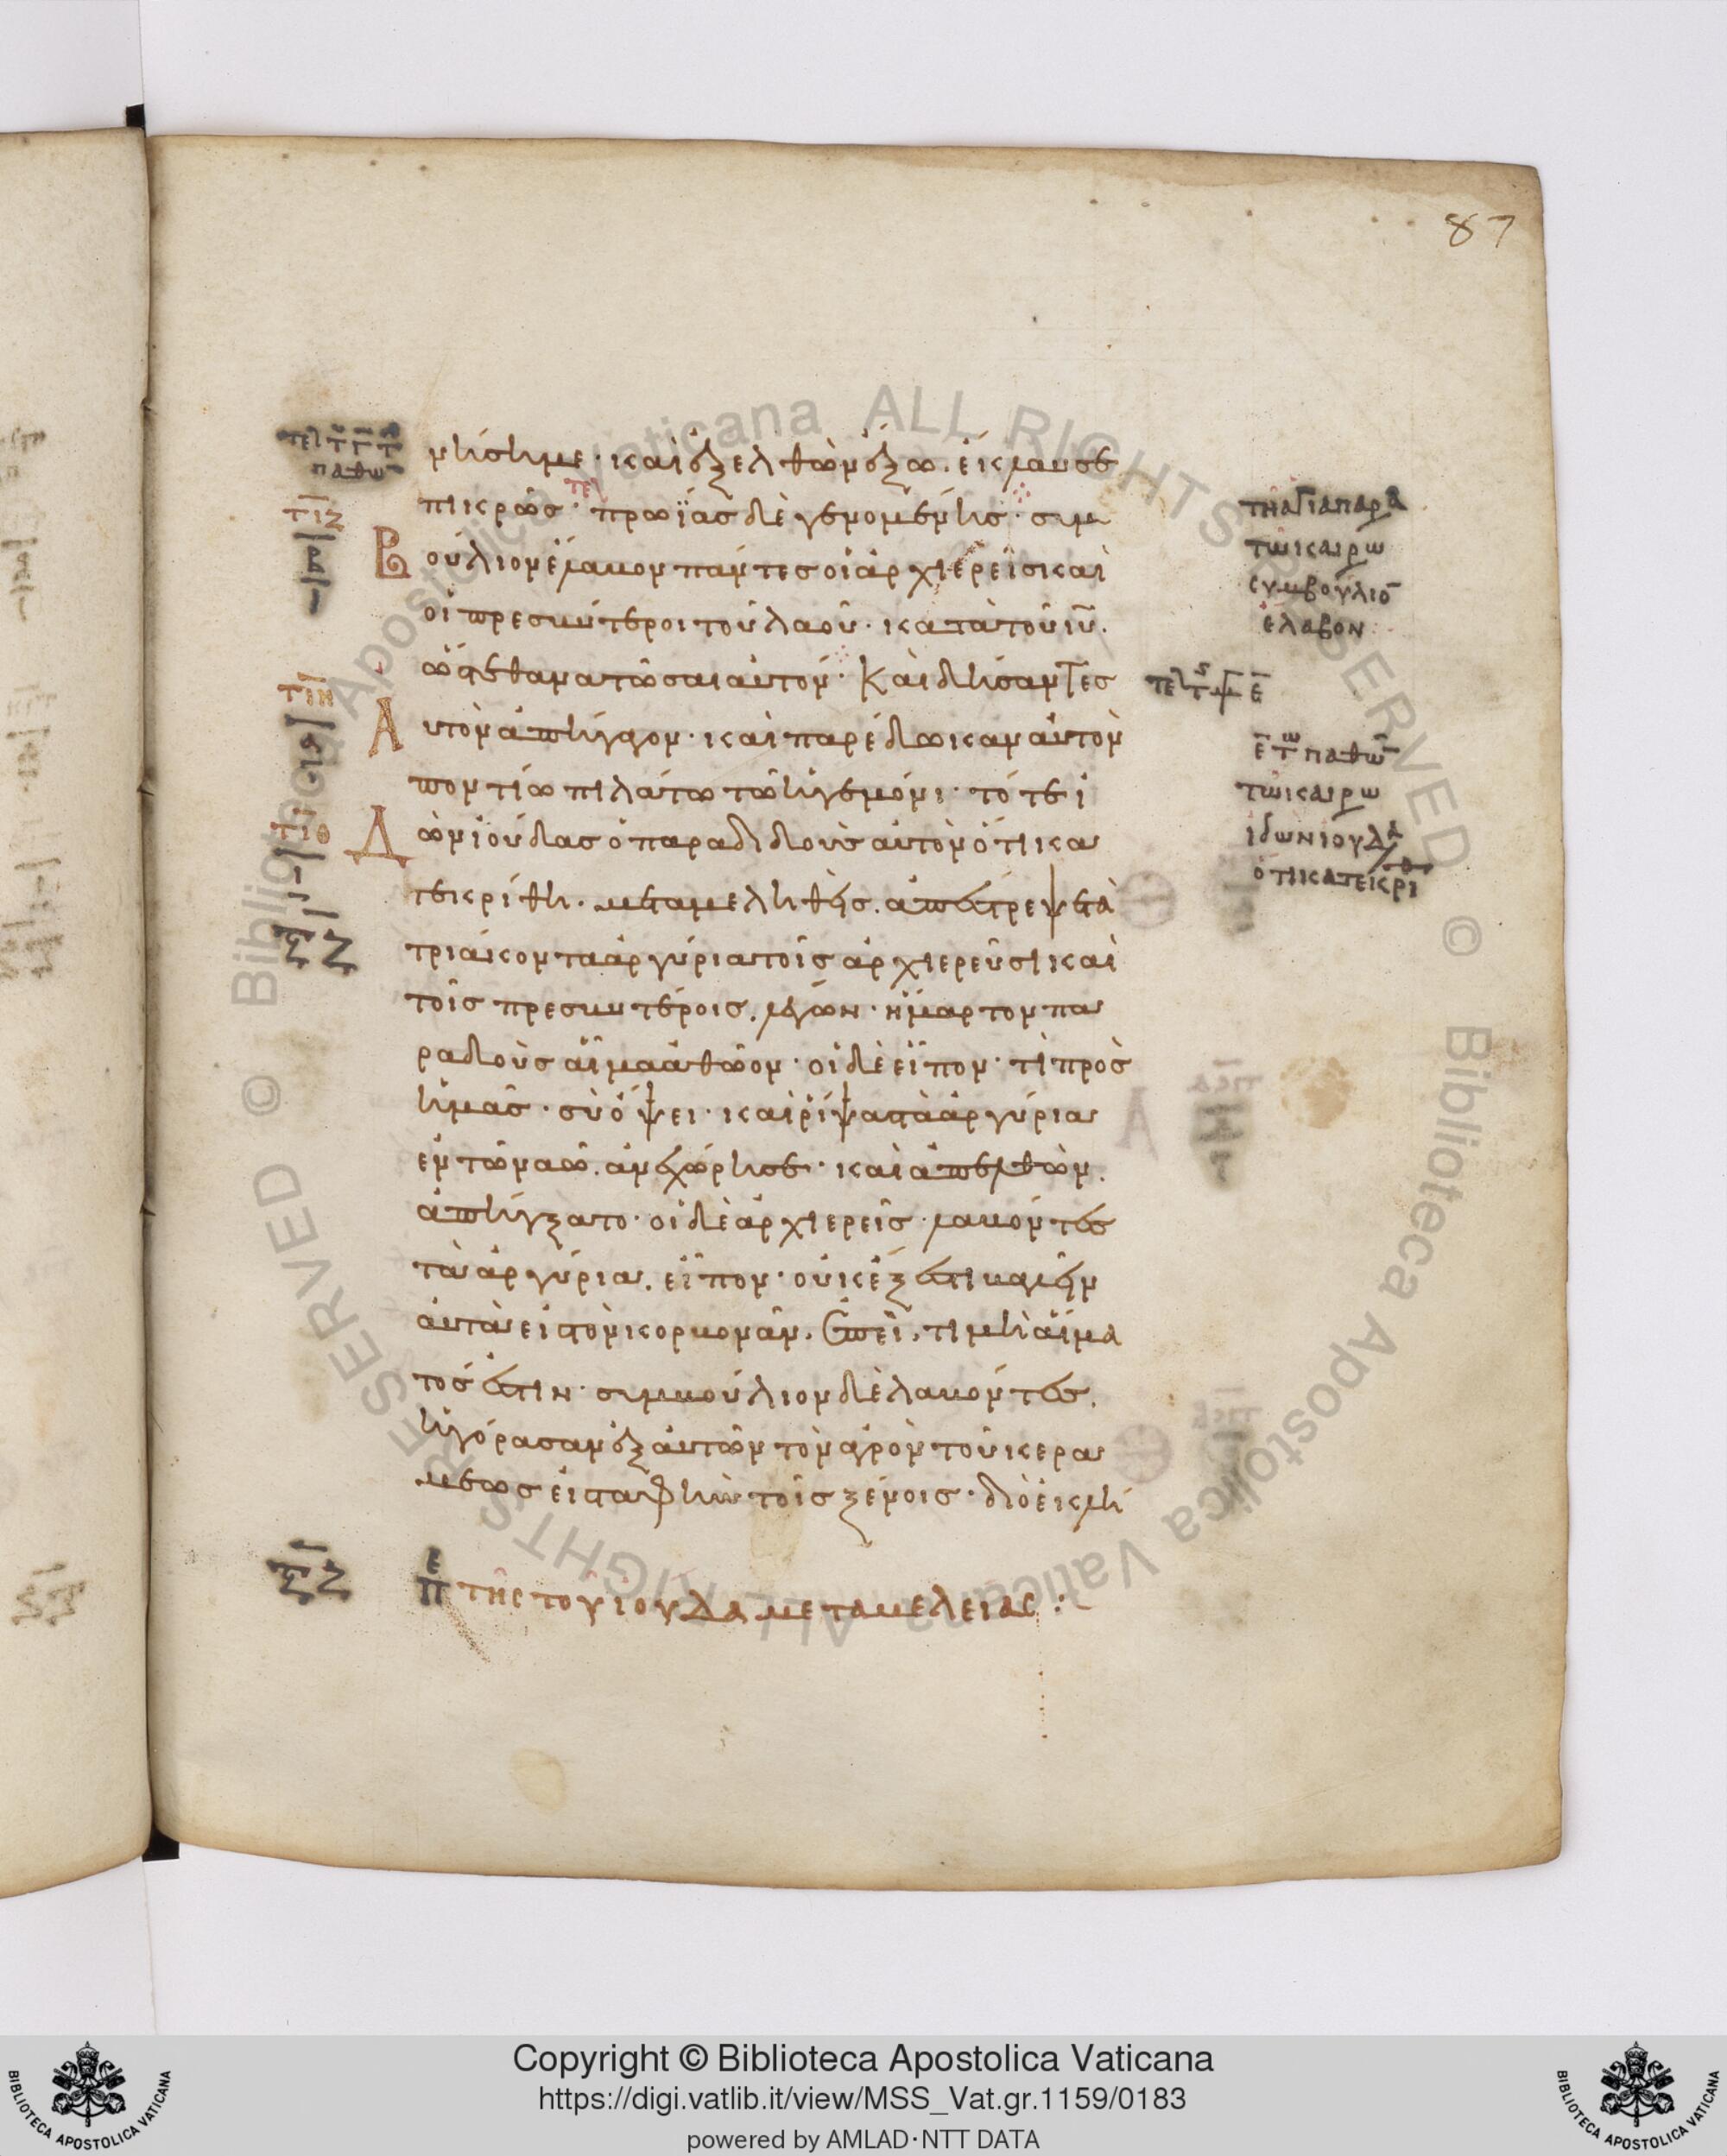 87
νήσημε· καὶ ἐξελθὼν ἔξω. ἔκλαυσε
πικρῶς· πρωΐας δὲ γενομένης· συμ
βούλιον ἔλαβον πάντες οἱ ἀρχιερεῖς καὶ
οἱ πρεσβύτεροι τοῦ λαοῦ· κατὰ τοῦ ιυ.
ὥστε θανατῶσαι αὐτόν· Καὶ δήσαντες
Αυτὸν ἀπήγαγον· καὶ παρέδωκαν αὐτὸν
ποντίω πιλάτω τῶ ἡγεμόνι· τότε ἰ
Δὼν ἰούδας ὁ παραδιδοὺς αὐτὸν ὅτι κα
τεκρίθη. μεταμεληθεὶς. ἀπέστρεψε τὰ
τριάκοντα ἀργύρια τοῖς ἀρχιερεῦσι καὶ
τοῖς πρεσβυτέροις. λέγων· ἥμαρτον πα
ραδοὺς αἷμα ἀθῶον· οἱ δὲ εἶπον· τί πρὸς
ἡμᾶς· σὺ ὄψει· καὶ ῥίψας τὰ ἀργύρια
ἐν τῶ ναῶ. ἀνεχώρησε· καὶ ἀπελθὼν.
ἀπήγξατο· οἱ δὲ ἀρχιερεῖς· λαβόντες
τὰ ἀργύρια. εἶπον· οὐκ ἔξεστι βαλεῖν
αὐτὰ εἰς τὸν κορβονᾶν. Ἐπεὶ. τιμὴ αἵμα
τός ἐστιν· συμβούλιον δὲ λαβόντες.
ἠγόρασαν ἐξ αὐτῶν τὸν ἀγρὸν τοῦ κερα
μέως εἰς ταφὴν τοῖς ξένοις· διὸ ἐκλή
της του ιουδα μεταμελειας :
τη αγια παρα
τω καιρω
συμβούλιο
ἔλαβον
τω καιρω
ιδων ιουδα
ὁτι κατεκρι
Copyright © Biblioteca Apostolica Vaticana
https://digi.vatlib.it/view/MSS_Vat.gr.1159/0183
powered by AMLAD·NTT DATA
BIBLIOTECA APOSTOLICA VATICANA
BIBLIOTECA APOSTOLICA VATICANA
© Biblioteca Apostolica Vaticana ALL RIGHTS RESERVED © Biblioteca Apostolica Vaticana ALL RIGHTS RESERVED